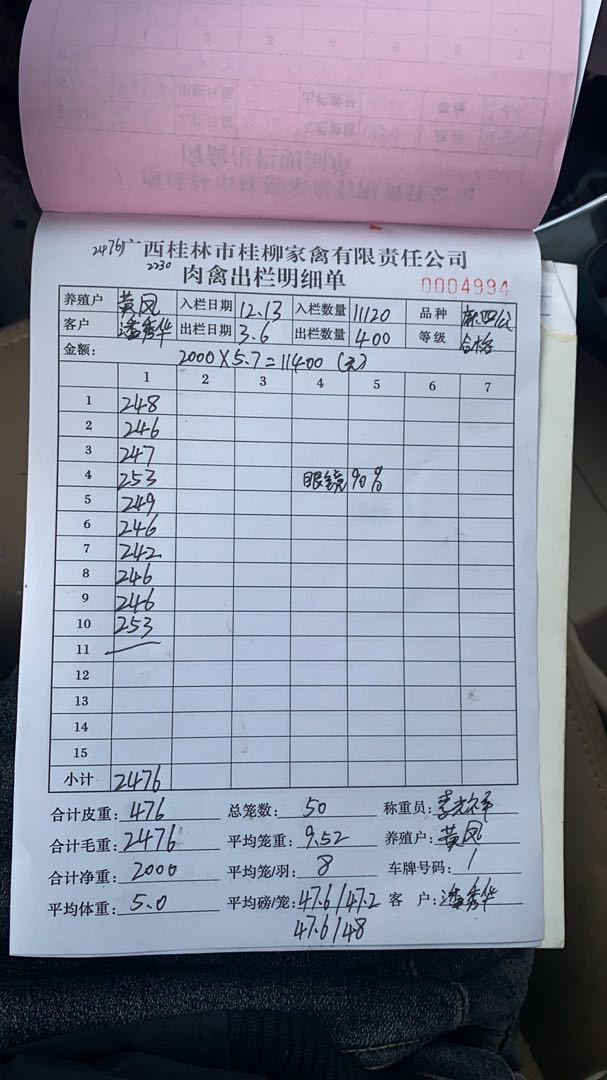 2476 广西桂林市桂柳家禽有限责任公司
2230
肉禽出栏明细单 0004994
养殖户 黄凤 入栏日期 12.13 入栏数量 11120 品种 麻四公
客户 潘秀华 出栏日期 3.6 出栏数量 400 等级 合格
金额: 2000×5.7=11400(元)
1 2 3 4 5 6 7
1 248
2 246
3 247
4 253 眼镜90%
5 249
6 246
7 242
8 246
9 246
10 253
11
12
13
14
15
小计 2476
合计皮重: 476 总笼数: 50 称重员:
合计毛重: 2476 平均笼重: 9.52 养殖户: 黄凤
合计净重: 2000 平均笼/羽: 8 车牌号码: 1
平均体重: 5.0 平均磅/笼: 47.6/47.2 客 户: 潘秀华
47.6/48